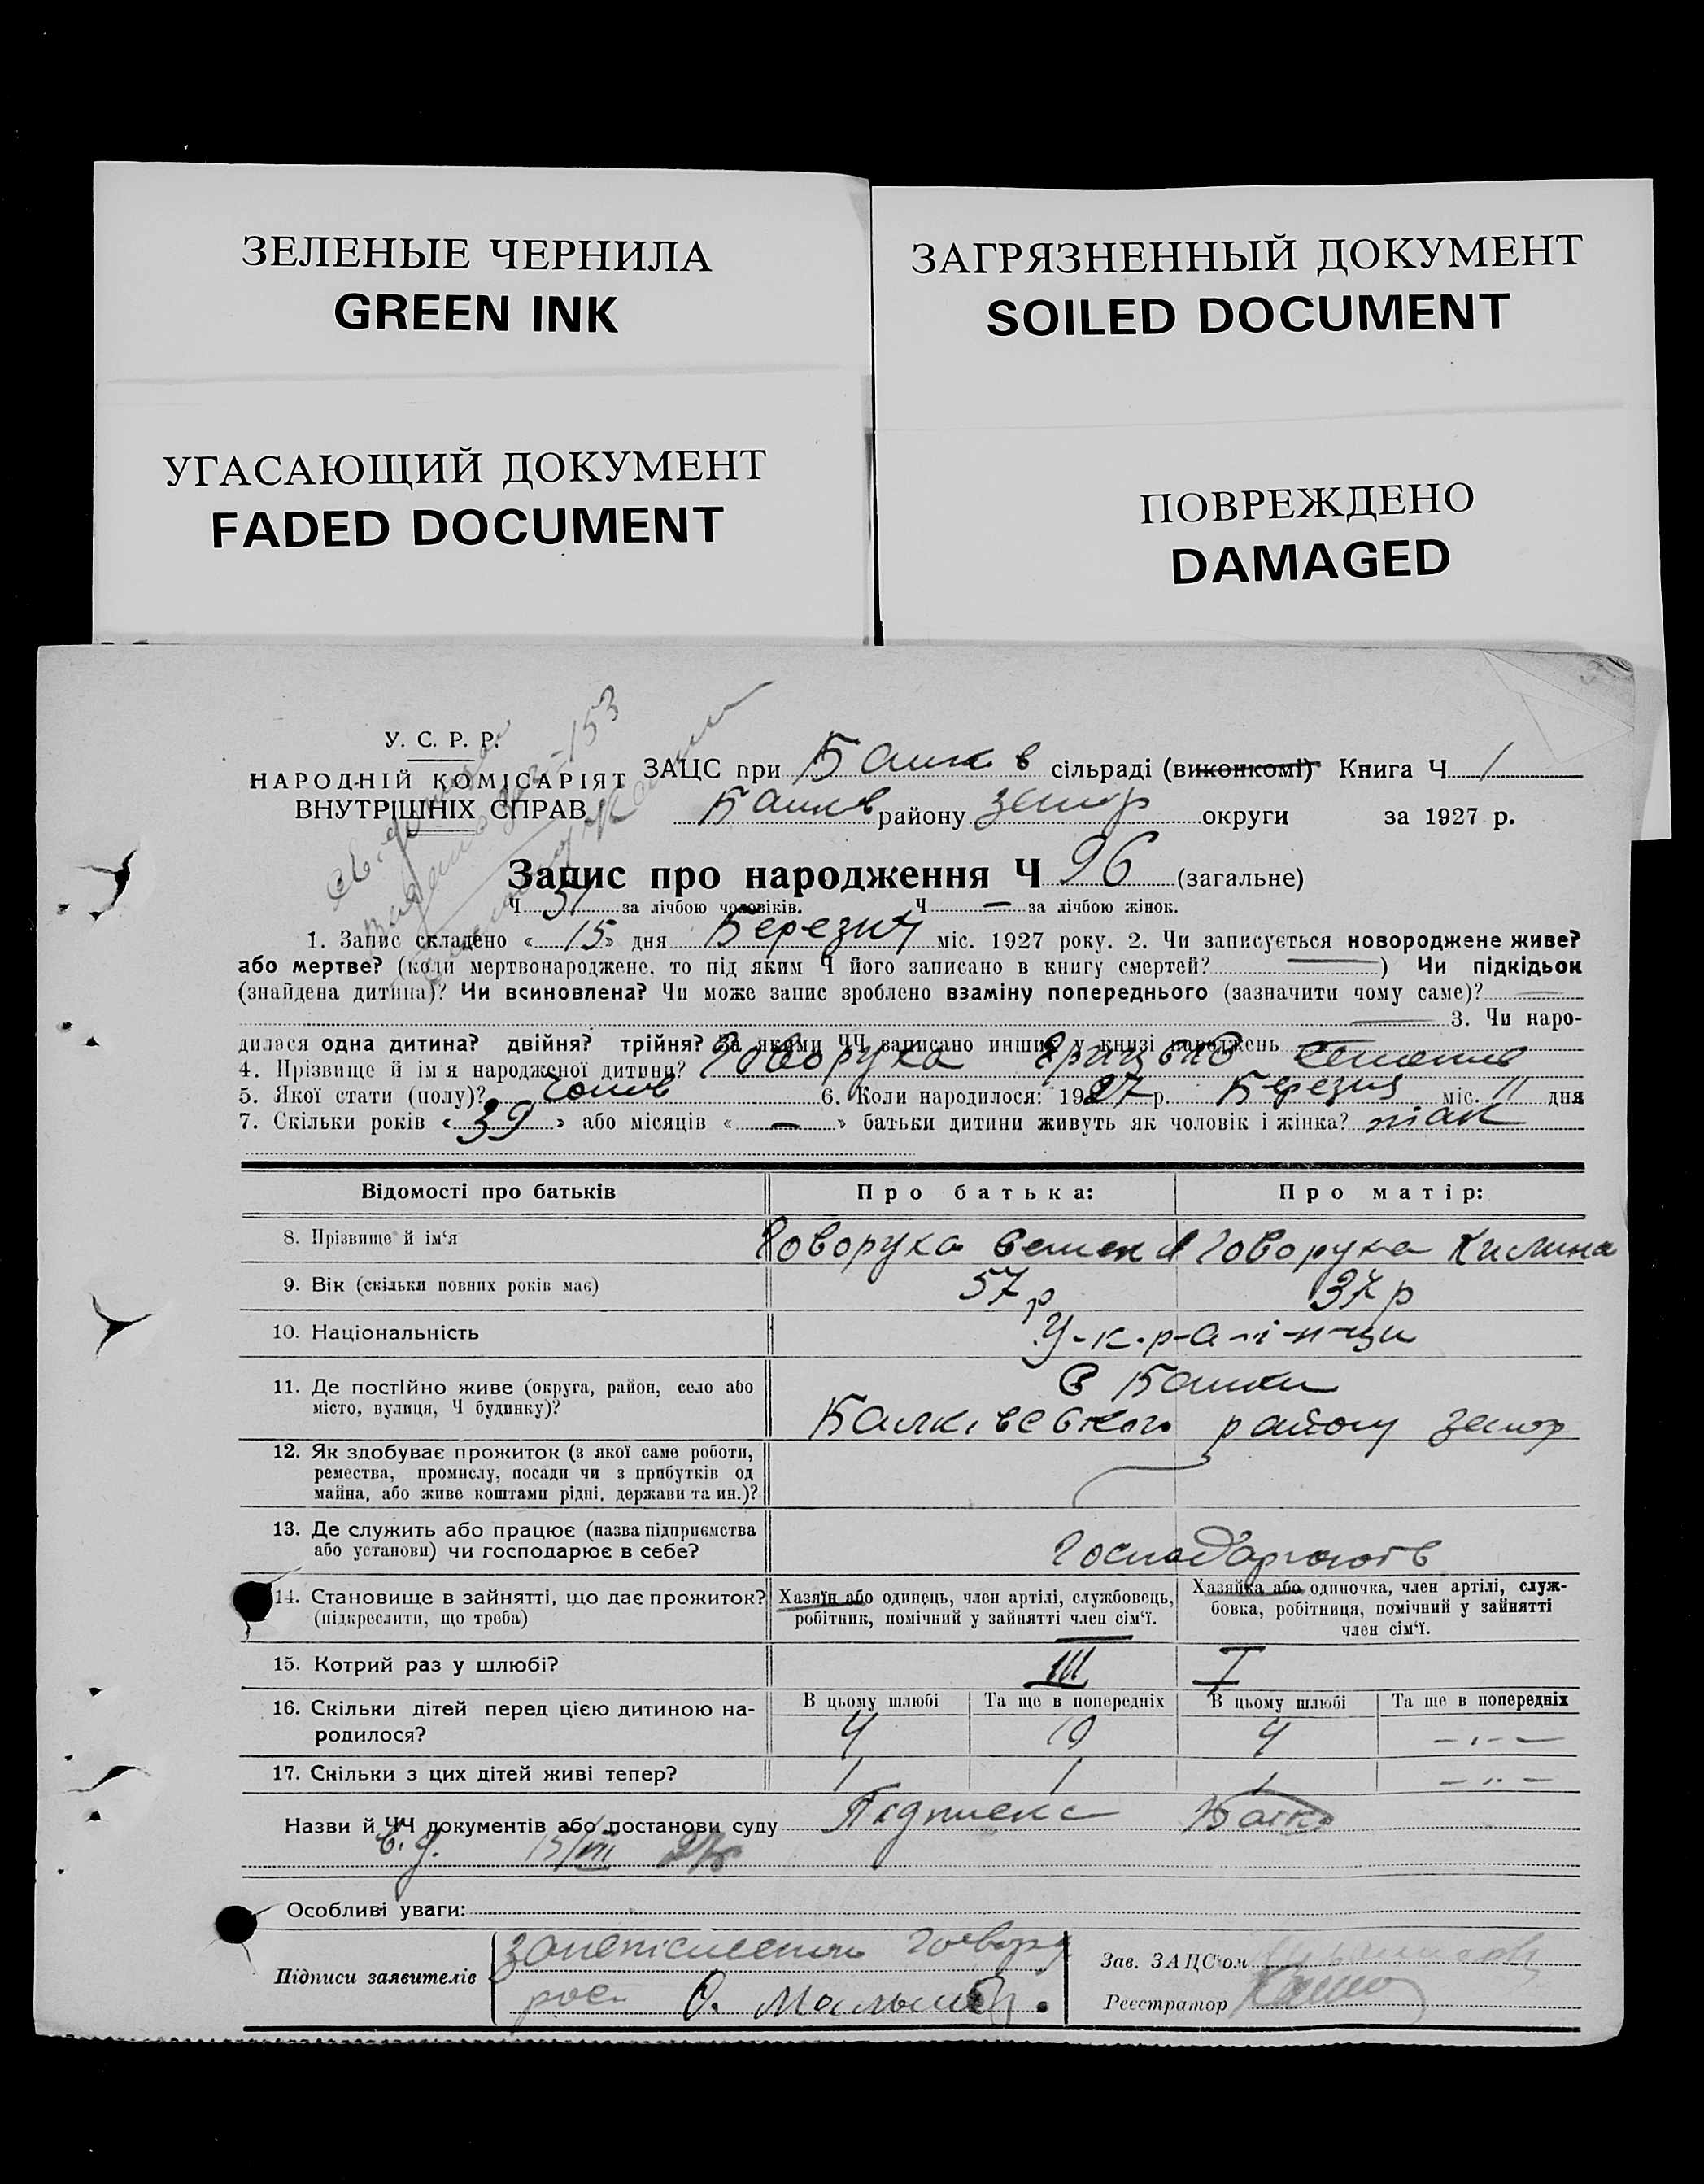 ЗЕЛЕНЫЕ ЧЕРНИЛА
GREEN INK
УГАСАЮЩИЙ ДОКУМЕНТ
FADED DOCUMENT
ЗАГРЯЗНЕННЫЙ ДОКУМЕНТ
SOILED DOCUMENT
ПОВРЕЖДЕНО
DAMAGED
У. С. Р. Р.
НАРОДНІЙ КОМІСАРІЯТ
ВНУТРІШНІХ СПРАВ
153
ЗАЦС при сільраді (виконкомі) Книга Ч 1
району округи за 1927 р.
Запис про народження Ч 96 (загальне)
Ч 51 за лічбою чоловіків. Ч — за лічбою жінок.
1. Запис складено «15» дня Березня міс. 1927 року. 2. Чи записується новороджене живе?
або мертве? (коли мертвонароджене, то під яким Ч його записано в книгу смертей? —) Чи підкідьок
(знайдена дитина)? Чи всиновлена? Чи може запис зроблено взаміну попереднього (зазначити чому саме)? —
— 3. Чи наро-
дилася одна дитина? двійня? трійня? За якими ЧЧ записано инших у книзі народжень
4. Прізвище й ім'я народженої дитини? Говоруха Грицько
5. Якої стати (полу)? Чолов 6. Коли народилося: 1927 р. Березня міс. 11 дня
7. Скільки років «39» або місяців «—» батьки дитини живуть як чоловік і жінка? так
Відомості про батьків
Про батька:
Про матір:
8. Прізвище й ім'я
Говоруха Семен
Говоруха Килина
9. Вік (скільки повних років має)
57 р
37 р
10. Національність
У-к-р-а-ї-н-ци
11. Де постійно живе (округа, район, село або
місто, вулиця, Ч будинку)?
С Балки
Балківського району запор
12. Як здобуває прожиток (з якої саме роботи,
ремества, промислу, посади чи з прибутків од
майна, або живе коштами рідні, держави та ин.)?
13. Де служить або працює (назва підприємства
або установи) чи господарює в себе?
14. Становище в зайнятті, що дає прожиток?
(підкреслити, що треба)
Хазяїн або одинець, член артілі, службовець,
робітник, помічний у зайнятті член сім'ї.
Хазяйка або одиночка, член артілі, служ-
бовка, робітниця, помічний у зайнятті
член сім'ї.
15. Котрий раз у шлюбі?
III
I
16. Скільки дітей перед цією дитиною на-
родилося?
В цьому шлюбі
Та ще в попередніх
В цьому шлюбі
Та ще в попередніх
4
4
17. Скільки з цих дітей живі тепер?
1
1
1
Назви й ЧЧ документів або постанови суду
15/III 27
Особливі уваги:
Підписи заявителів
Зав. ЗАЦС'ом
Реєстратор